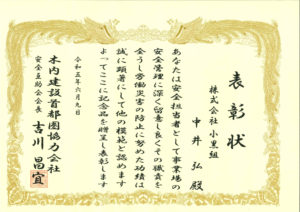 表彰状
株式会社 小黒組
中井 弘 殿
あなたは安全担当者として事業場の
安全管理に深く留意し良くその職責を
全うし労働災害の防止に努めた功績は
誠に顕著にして他の模範と認めます
よってここに記念品を贈呈し表彰します
令和五年六月九日
木内建設首都圏協力会社
安全互助会会長
古川 昌宜